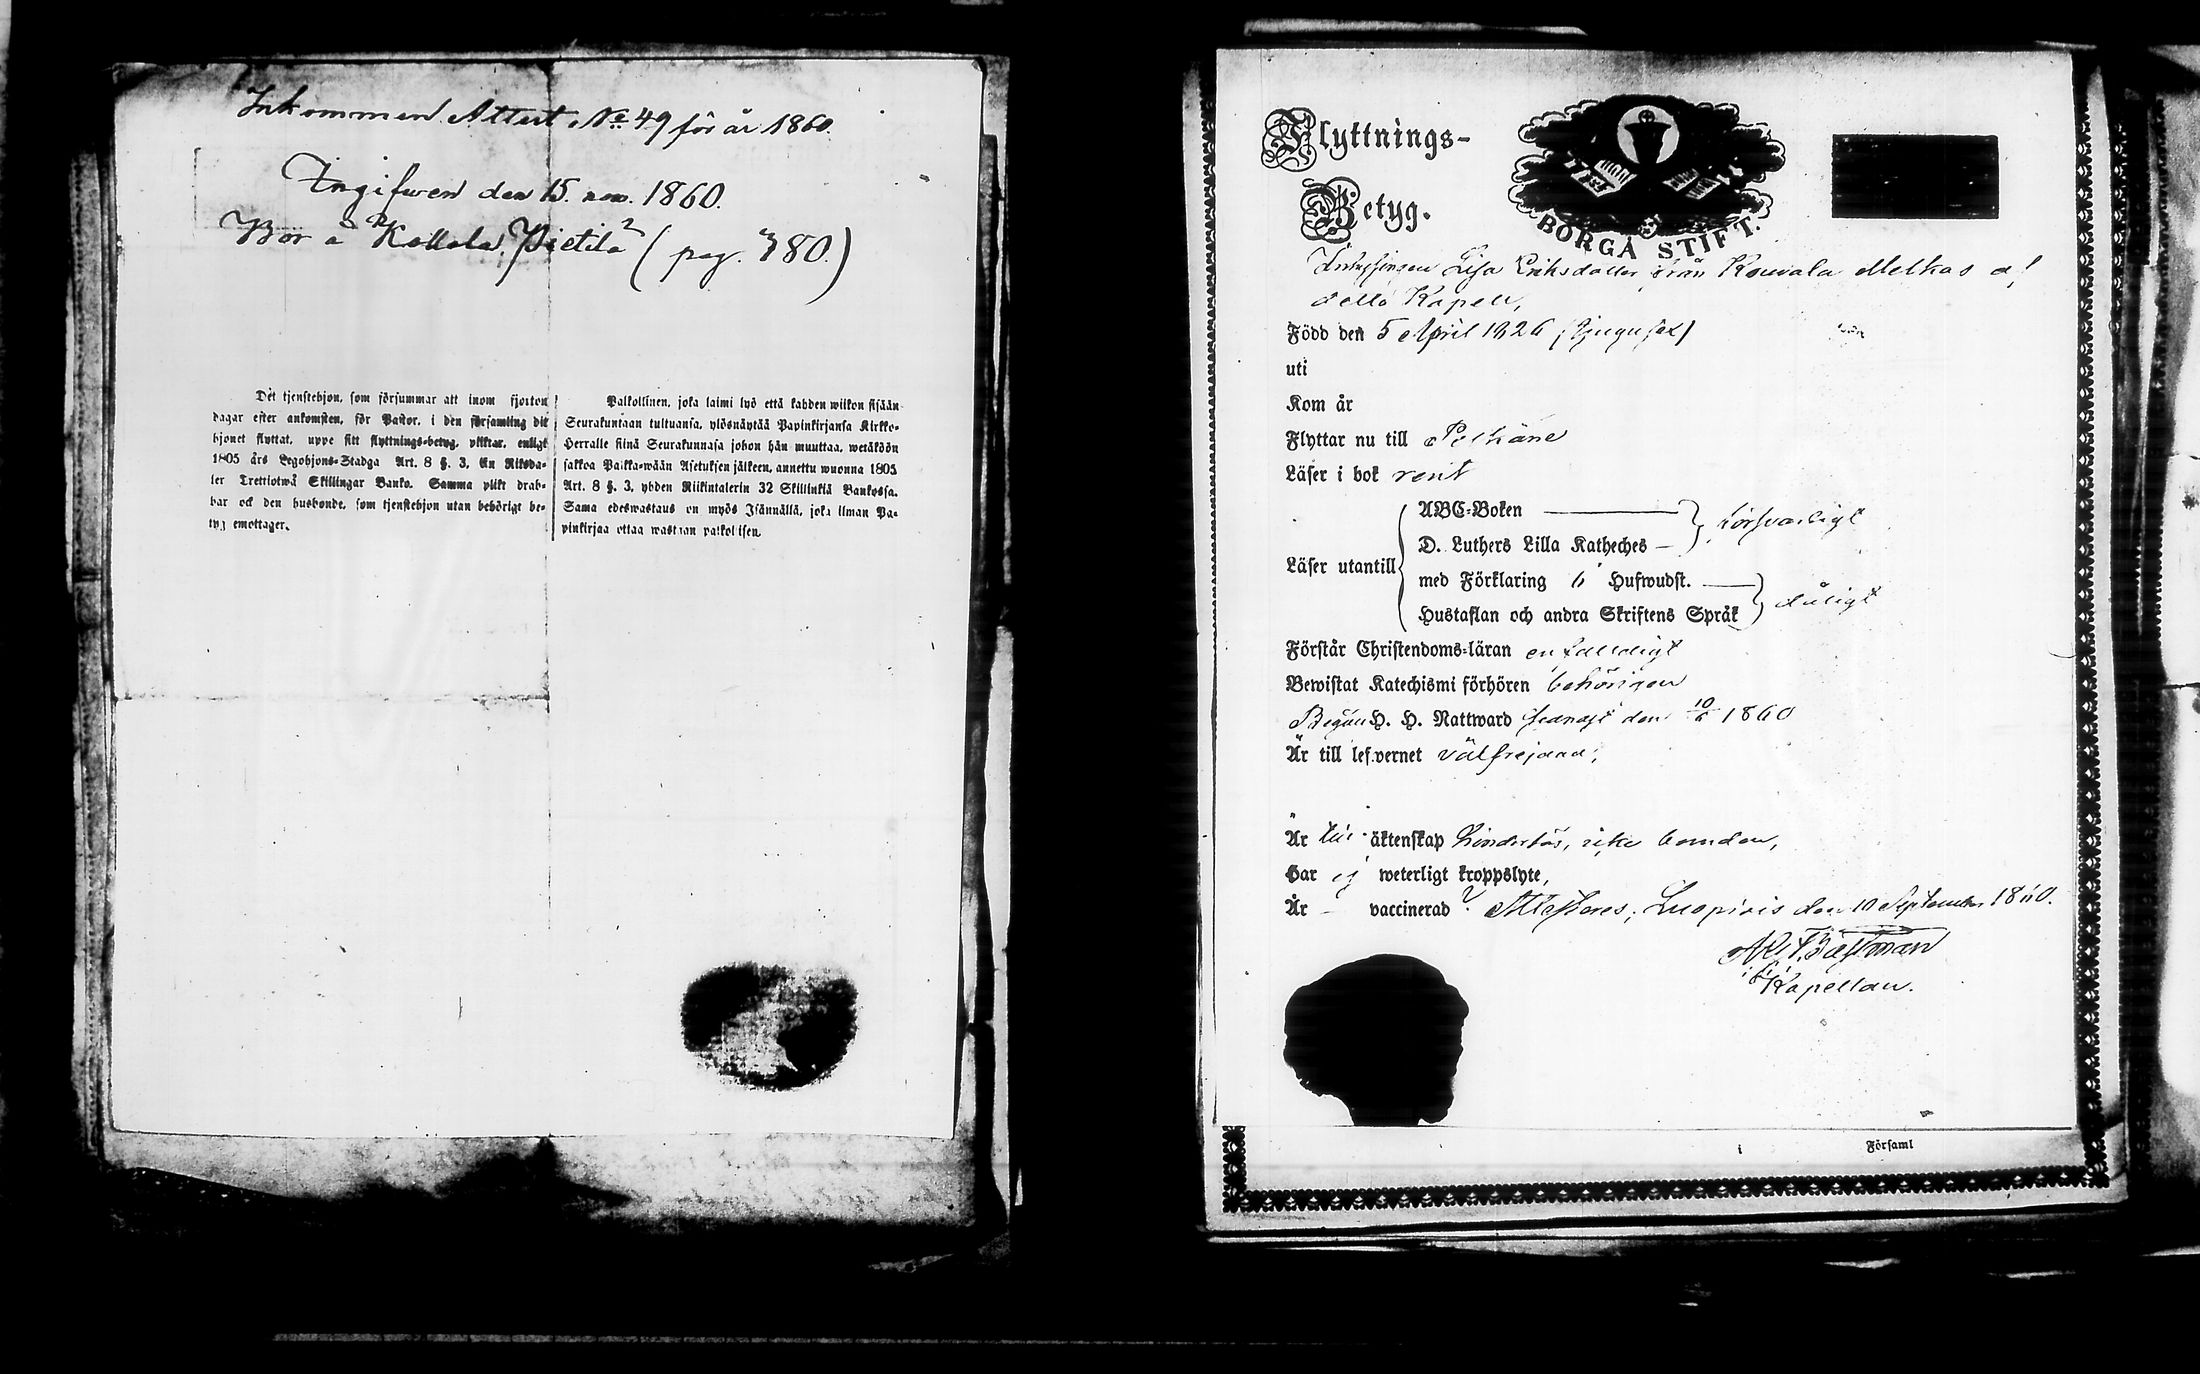 Inkommen Attest, No 49 för år 1860.
Ingifwen den 15. nov. 1860.
Bor å Kollola, Pietila (pag. 380.)
Det tjenstehjon, som försummar att inom fjorton
dagar efter ankomsten, för Pastor, i den församling dit
hjonet flyttat, uppe sitt flyttnings-betyg, pliktar, enligt
1805 års Legohjons-Stadga Art. 8 §. 3, En Riksda-
ler Trettiotwå Skillingar Banko. Samma plikt drab-
bar ock den husbonde, som tjenstehjon utan behörigt be-
tyg emottager.
Palkollinen, joka laimi lyö että kahden wiikon sisään
Seurakuntaan tultuansa, ylösnäytää Papinkirjansa Kirkko-
Herralle siinä Seurakunnasa johon hän muuttaa, wetäköön
sakkoa Paikka-wään Asetuksen jälkeen, annettu wuonna 1805
Art. 8 §. 3, yhden Riikintalerin 32 Skillinkiä Bankossa.
Sama edeswastaus on myös Isännällä, joka ilman Pa-
pinkirjaa ottaa wastaan palkollisen.
Flyttnings-
Betyg.
BORGÅ STIFT.
Inhysingen Lisa Eriksdotter från Kouvala Melkas
detta Kapell,
Född den 5 April 1826 (tjugusex)
uti
Kom år
Flyttar nu till Pelkäne
Läser i bok rent
ABC-Boken
D. Luthers Lilla Katheches
försvarligt
Läser utantill
med Förklaring 6 Hufwudst.
Hustaflan och andra Skriftens Språk
dåligt
Förstår Christendoms-läran enfaldigt
Bewistat Katechismi förhören behörigen
Begått H. H. Nattward senast den 10/6 1860
Är till lefvernet välfrejdad,
Är till äktenskap hinderlös, icke bunden,
Har ej weterligt kroppslyte,
Är – vaccinerad? Attesteras, Luopiois den 10 September 1860.
Kapellan.
i Församl